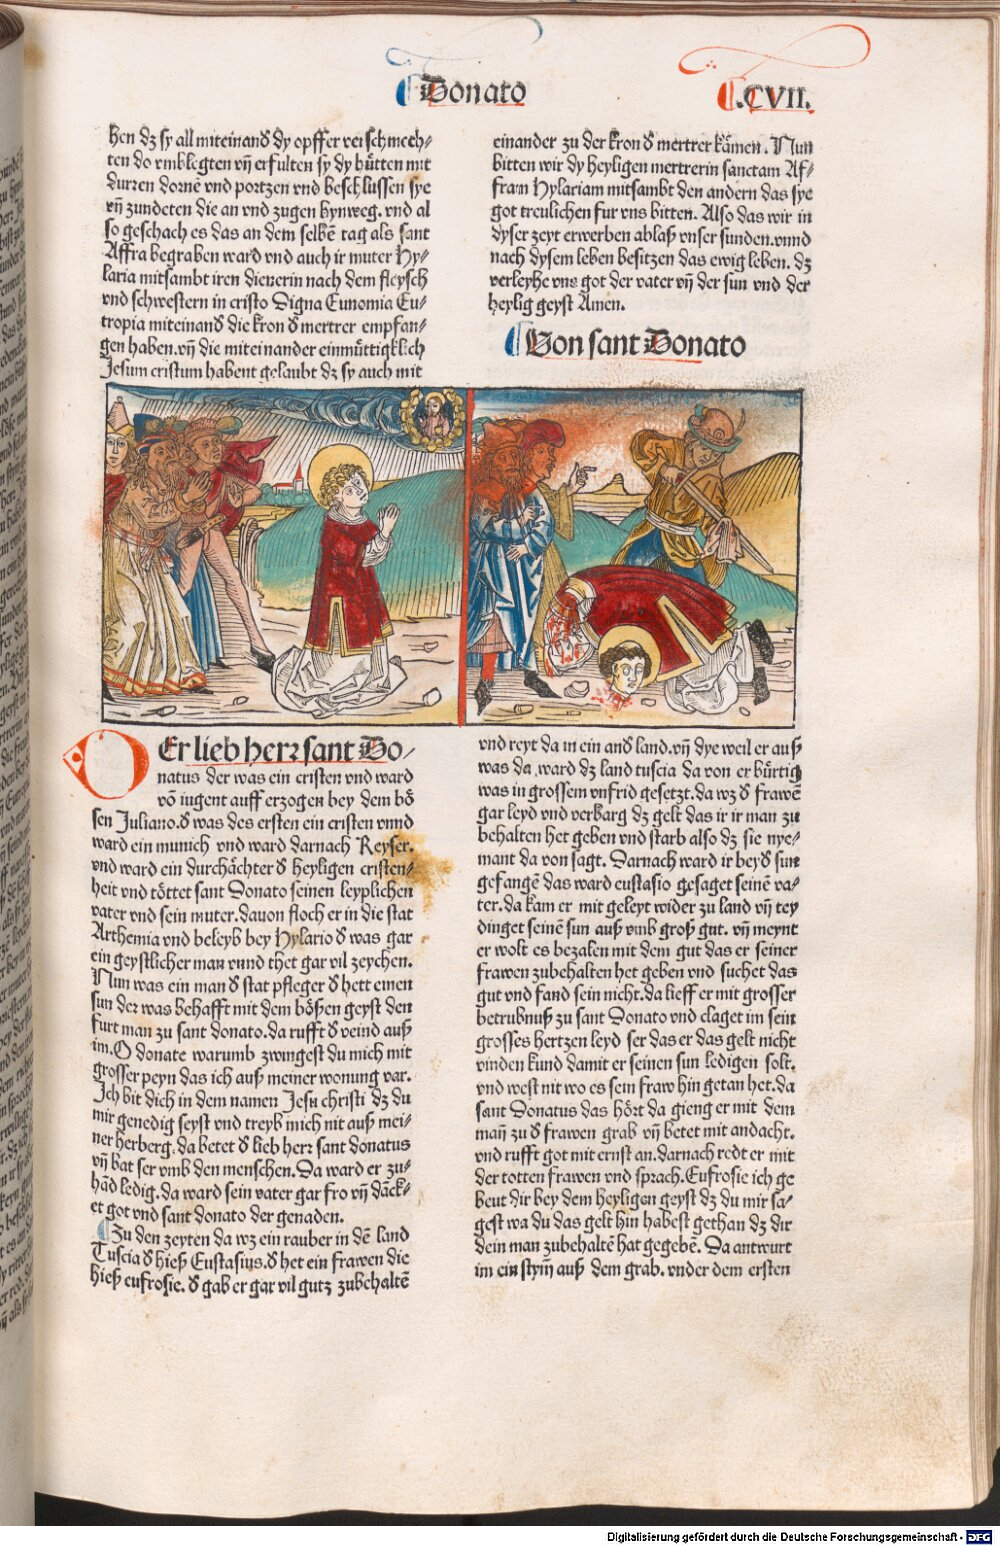 Donato
.CVII.
hen dz sy all miteinand dy opffer verschmech⸗
ten do vmblegten vñ erfulten sy dy hütten mit
durren dorne vnd portzen vnd beschlussen sye
vñ zundeten die an vnd zugen hynweg. vnd al
so geschach es das an dem selbē tag als sant
Affra begraben ward vnd auch ir muter Hy⸗
laria mitsambt iren dienerin nach dem fleysch
vnd schwestern in cristo Digna Eunomia Eu⸗
tropia miteinand die kron d mertrer empfan⸗
gen haben. vñ die miteinander einmüttigklich
Jesum cristum habent gelaubt dz sy auch mit
einander zu der kron d mertrer kämen. Nun
bitten wir dy heyligen mertrerin sanctam Af⸗
fram Hylariam mitsambt den andern das sye
got treulichen fur vns bitten. Also das wir in
dyser zeyt erwerben ablaß vnser sunden. vnnd
nach dysem leben besitzen das ewig leben. dz
verleyhe vns got der vater vñ der sun vnd der
heylig geyst Amen.
Von sant Donato
DEr lieb herr sant Do⸗
natus der was ein cristen vnd ward
vō iugent auff erzogen bey dem bö
sen Juliano. d was des ersten ein cristen vnnd
ward ein munich vnd ward darnach Keyser.
vnd ward ein durchächter d heyligen cristen⸗
heit vnd töttet sant Donato seinen leyplichen
vater vnd sein muter. dauon floch er in die stat
Arthemia vnd beleyb bey Hylario d was gar
ein geystlicher man vnnd thet gar vil zeychen.
Nun was ein man d stat pfleger d hett einen
sun der was behafft mit dem bößen geyst den
furt man zu sant donato. da rufft d veind auß
im. O donate warumb zwingest du mich mit
grosser peyn das ich auß meiner wonung var.
Jch bit dich in dem namen Jesu christi dz du
mir genedig seyst vnd treyb mich nit auß mei⸗
ner herberg. da betet d lieb herr sant donatus
vñ bat ser vmb den menschen. Da ward er zu⸗
hād ledig. da ward sein vater gar fro vñ dāck⸗
et got vnd sant donato der genaden.
Zu den zeyten da wz ein rauber in dē land
Tuscia d hieß Eustasius. d het ein frawen die
hieß eufrosie. d gab er gar vil gutz zubehaltē
vnd reyt da in ein and land. vñ dye weil er auß
was da ward dz land tuscia da von er bürtig
was in grossem vnfrid gesetzt. da wz d frawē
gar leyd vnd verbarg dz gelt das ir ir man zu
behalten het geben vnd starb also dz sie nye⸗
mant da von sagt. Darnach ward ir beyd sun
gefangē das ward eustasio gesaget seinē va⸗
ter. da kam er mit geleyt wider zu land vñ tey
dinget seinē sun auß vmb groß gut. vñ meynt
er wolt es bezalen mit dem gut das er seiner
frawen zubehalten het geben vnd suchet das
gut vnd fand sein nicht. da lieff er mit grosser
betrubnuß zu sant Donato vnd claget im sein
grosses hertzen leyd ser das er das gelt nicht
vinden kund damit er seinen sun ledigen solt.
vnd west nit wo es sein fraw hin getan het. da
sant Donatus das hört da gieng er mit dem
mañ zu d frawen grab vñ betet mit andacht.
vnd rufft got mit ernst an. darnach redt er mit
der totten frawen vnd sprach. Eufrosie ich ge
beut dir bey dem heyligen geyst dz du mir sa⸗
gest wa du das gelt hin habest gethan dz dir
dein man zubehaltē hat gegebē. Da antwurt
im ein stym auß dem grab. vnder dem ersten
Digitalisierung gefördert durch die Deutsche Forschungsgemeinschaft - DFG